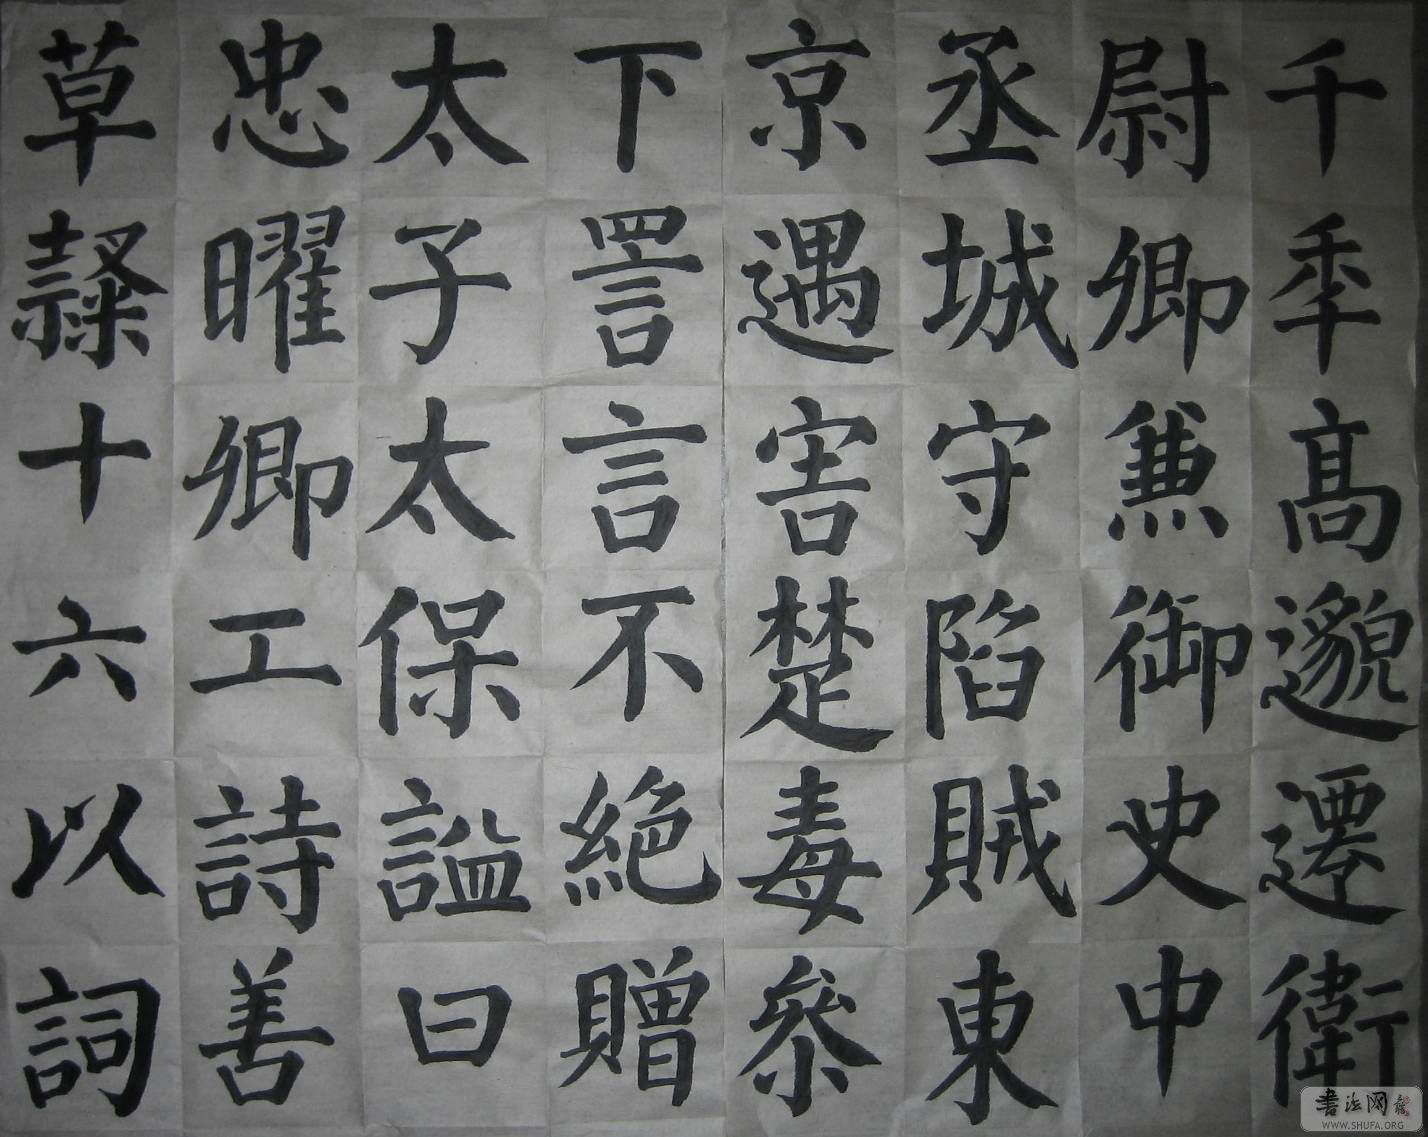 千秊高邈遷衛
尉卿兼御史中
丞城守陷賊東
京遇害楚毒參
下詈言不絕贈
太子太保謚曰
忠曜卿工詩善
草隸十六以詞
書法网
WWW.SHUFA.ORG